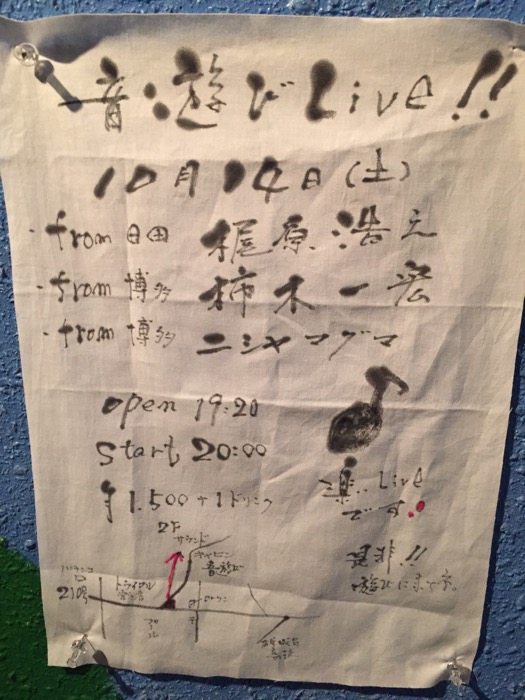 音遊びLive!!
10月14日(土)
・from 日田 梶原浩之
・from 博多 柿木一宏
・from 博多 ニシヤマグマ
open 19:20
Start 20:00
¥1,500+1ドリンク
楽 Live
です
是非!!
遊びに
2F
サウンド
音遊び
トライアル
210号